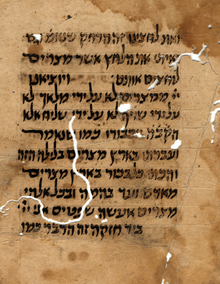 ואת לחצינו זה הדחק שנאמר גם
ראיתי את הלחץ אשר מצרים
לוחצים אותם ויוציאנו
ממצרים לא עלידי מלאך לא
עלידי שרף לא עלידי שליח אלא
הקבה בכבודו כמו שנאמר
ועברתי בארץ מצרים בלילה הזה
והכתי כל בכור בארץ מצרים
מאדם ועד בהמה ובכל אלהי
מצרים אעשה שפטים אני
ביד חזקה זה הדבר כמו